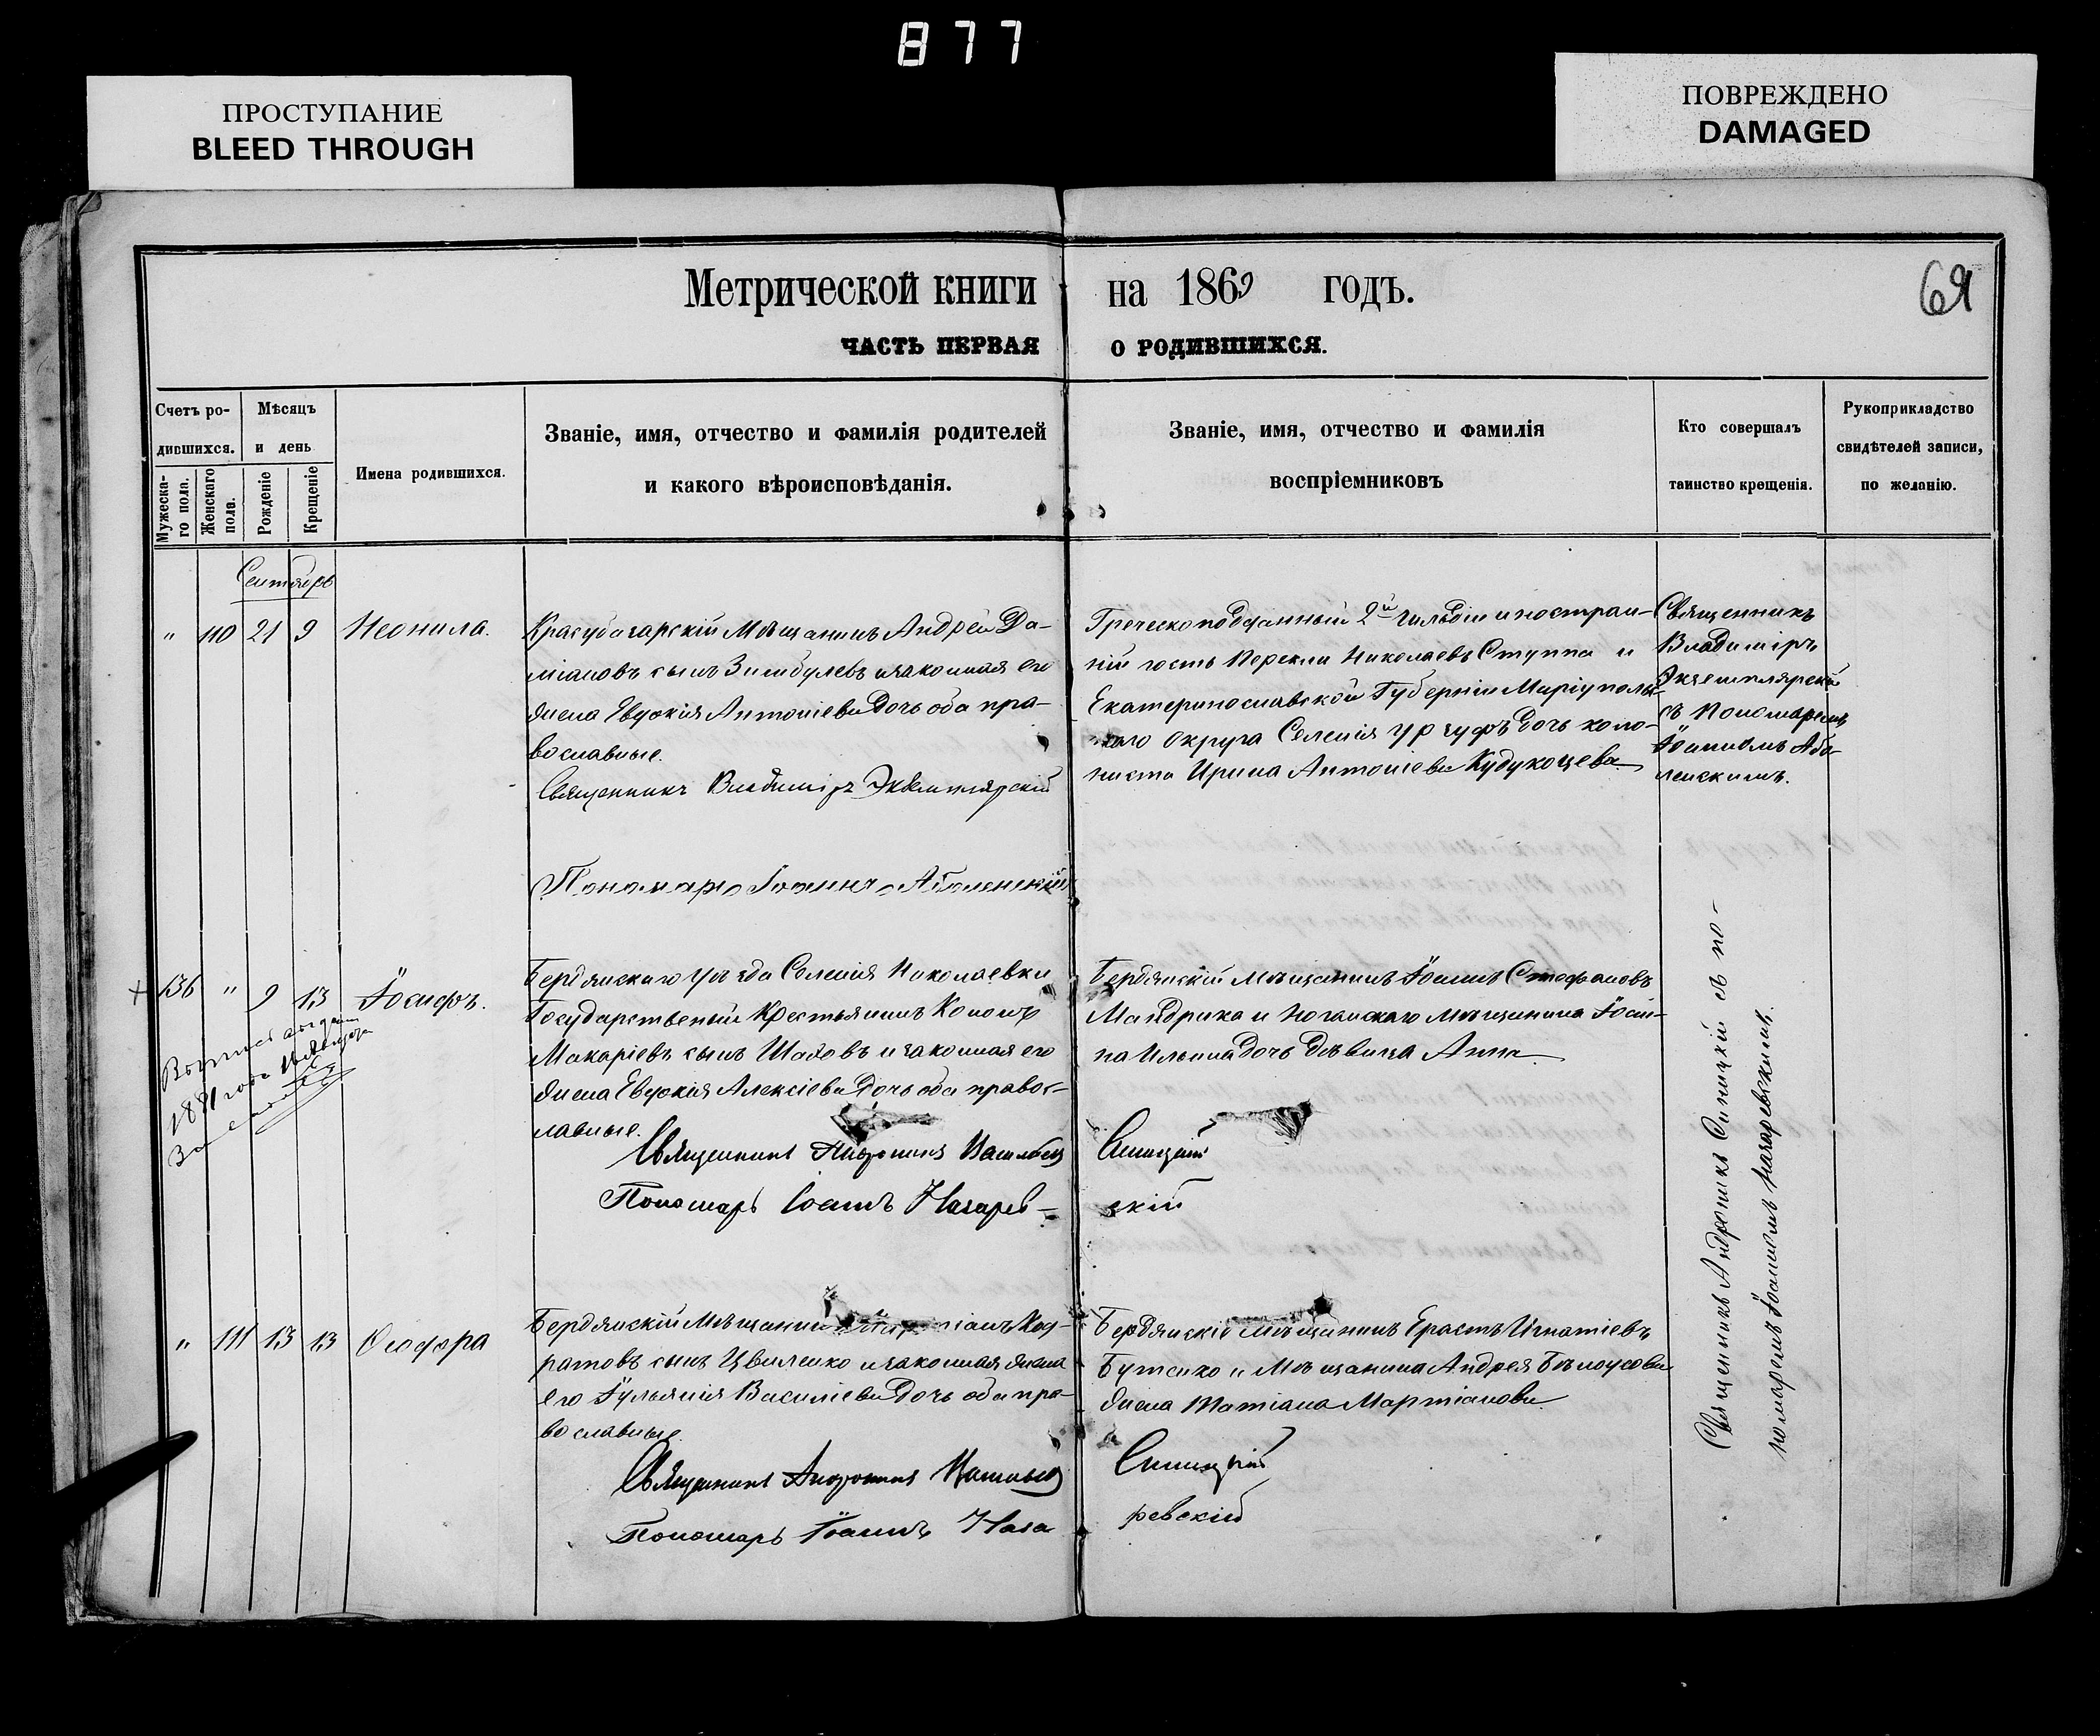 877
ПРОСТУПАНИЕ
BLEED THROUGH
ПОВРЕЖДЕНО
DAMAGED
Метрической книги на 1869 годъ.
69
ЧАСТЬ ПЕРВАЯ О РОДИВШИХСЯ.
Счетъ ро-
дившихся.
Мужеска-
го пола.
Женскаго
пола.
Мѣсяцъ
и день
Рожденіе
Крещеніе
Имена родившихся.
Званіе, имя, отчество и фамилія родителей
и какого вѣроисповѣданія.
Званіе, имя, отчество и фамилія
воспріемниковъ
Кто совершалъ
таинство крещенія.
Рукоприкладство
свидѣтелей записи,
по желанію.
Сентябрь
" 110 21 9 Неонила.
Мѣщанинъ Андрей Да-
міановъ сынъ и законная его
жена Евдокія Антоніева дочь оба пра-
вославные.
Священникъ Владиміръ Экземплярскій
Пономарь Іоаннъ Аболенскій
Греческоподданный 2й гильдіи иностран-
ній гость Николаевъ Ступпа и
Екатеринославской Губерніи Маріуполь-
скаго округа Селенія Урзуфъ дочь коло-
ниста Ирина Антоніева
Священникъ
Владиміръ
Экземплярскій
съ Пономаремъ
Іоанномъ Або-
ленскимъ.
+ 136 " 9 13 Іосифъ.
1881 года
Бердянскаго Уѣзда Селенія Николаевки
Государственый Крестьянинъ Кононъ
Макаріевъ сынъ Шаховъ и законная его
жена Евдокія Алексіева дочь оба правос-
лавные.
Священникъ Андроникъ Васильевъ Синицкій
Пономарь Іоаннъ Назарев-
скій
Бердянскій мѣщанинъ Іоаннъ Стефановъ
Мандрика и Ногайскаго мѣщанина Іосип-
па Ильина дочь дѣвица Анна
" 111 13 13 Ѳеодора
Бердянскій Мѣщанинъ Код-
ратовъ сынъ Цвиленко и законная жена
его Іульянія Василіева дочь оба пра-
вославные.
Священникъ Андроникъ Синицкій
Пономарь Іоаннъ Наза
ревскій
Бердянскіе мѣщанинъ Ерастъ Игнатіевъ
Бутенко и Мѣщанина Андрея Бѣлоусова
жена Татіана Мартіанова
Священникъ Андроникъ Синицкій съ по-
номаремъ Іоанномъ Назаревскимъ.